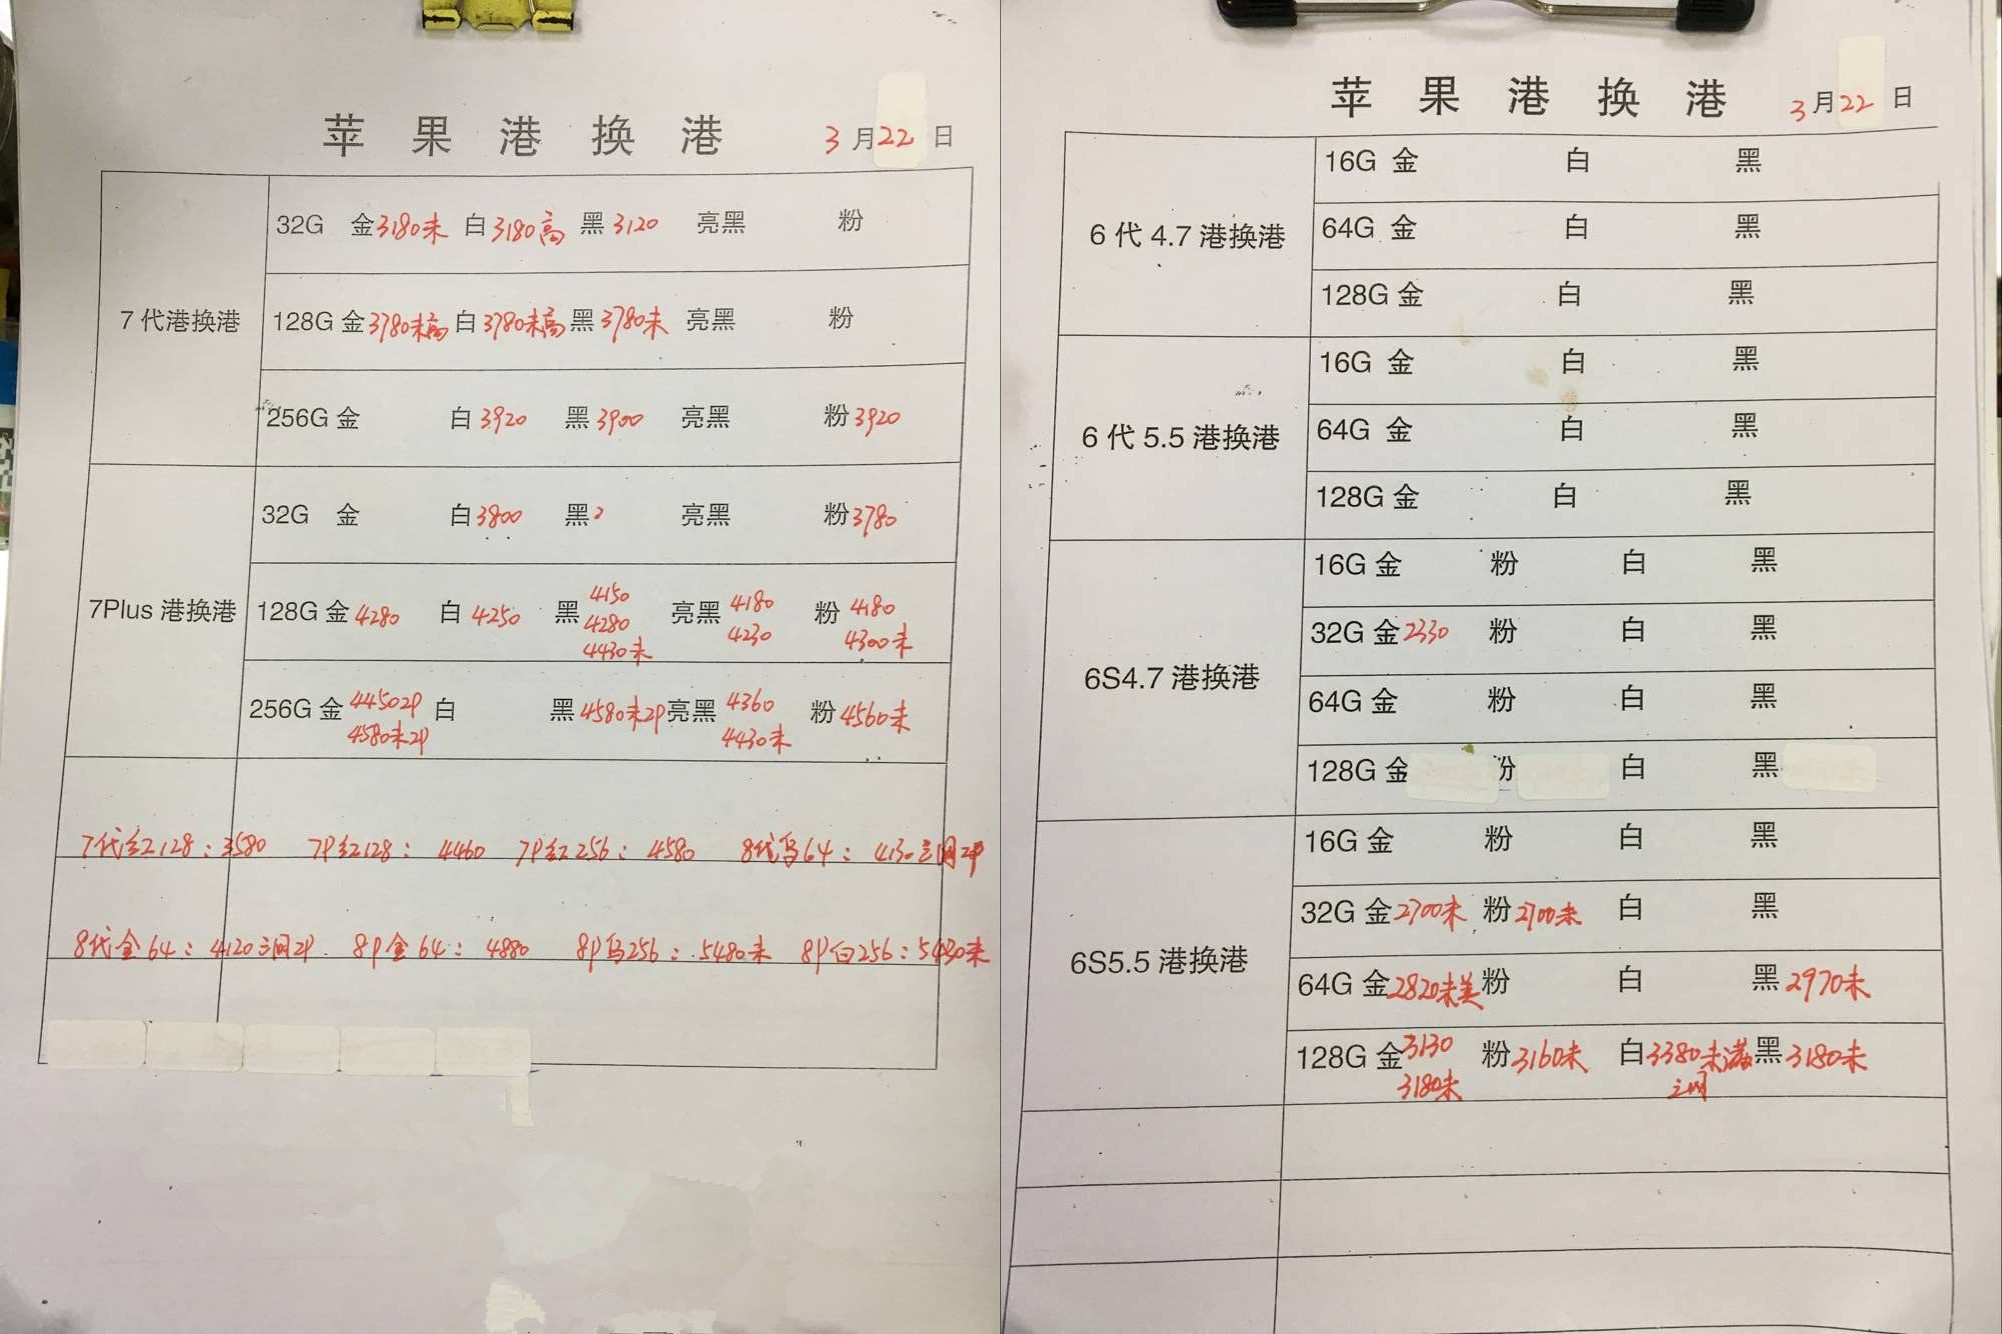 苹果港换港 3月22日
7代港换港
32G 金3180未 白3180高 黑3120 亮黑 粉
128G 金3780未高 白3780未高 黑3780未 亮黑 粉
256G 金 白3920 黑3900 亮黑 粉3920
7Plus 港换港
32G 金 白3800 黑 亮黑 粉3780
128G 金4280 白4250 黑4150 4280 4430未 亮黑4180 4230 粉4180 4300未
256G 金4450 2P 4580未2P 白 黑4580未2P 亮黑4360 4430未 粉4560未
7代红128：3580 7P红128：4460 7P红256：4580 8代乌64：4130三网2P
8代金64：4120三网2P 8P金64：4880 8P乌256：5480未 8P白256：5430未
苹果港换港 3月22日
6代4.7港换港
16G 金 白 黑
64G 金 白 黑
128G 金 白 黑
6代5.5港换港
16G 金 白 黑
64G 金 白 黑
128G 金 白 黑
6S4.7港换港
16G 金 粉 白 黑
32G 金2330 粉 白 黑
64G 金 粉 白 黑
128G 金 粉 白 黑
6S5.5港换港
16G 金 粉 白 黑
32G 金2700未 粉2700未 白 黑
64G 金2820未美 粉 白 黑2970未
128G 金3130 3180未 粉3160未 白3380未满三网 黑3180未